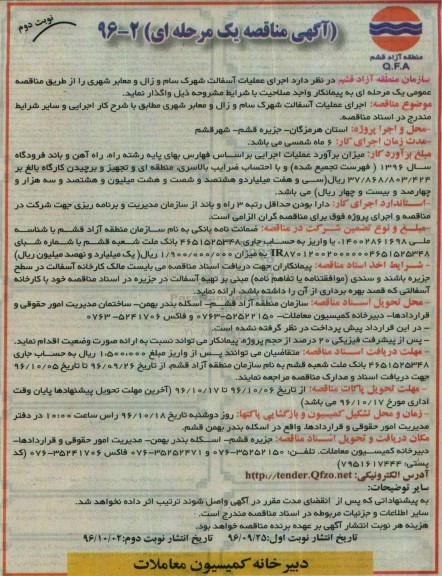 نوبت دوم
(آگهی مناقصه یک مرحله ای) ۲-۹۶
منطقه آزاد قشم
Q.F.A
سازمان منطقه آزاد قشم در نظر دارد اجرای عملیات آسفالت شهرک سام و زال و معابر شهری را از طریق مناقصه
عمومی یک مرحله ای به پیمانکار واجد صلاحیت با شرایط مشروحه ذیل واگذار نماید.
موضوع مناقصه: اجرای عملیات آسفالت شهرک سام و زال و معابر شهری مطابق با شرح کار اجرایی و سایر شرایط
مندرج در اسناد مناقصه.
-محل و اجرا پروژه: استان هرمزگان- جزیره قشم- شهرقشم
-مدت زمان اجرای کار: ۶ ماه شمسی می باشد.
مبلغ برآورد کار: میزان برآورد عملیات اجرایی براساس فهارس بهای پایه رشته راه، راه آهن و باند فرودگاه
سال ۱۳۹۶ ( فهرست تجمیع شده) و با احتساب ضرایب بالاسری، منطقه ای و تجهیز و برچیدن کارگاه بالغ بر
۳۷/۸۶۸/۸۰۳/۴۲۴ ریال(سی و هفت میلیاردو هشتصد و شصت و هشت میلیون و هشتصد و سه هزار و
چهارصد و بیست و چهار ریال) می باشد.
-استاندارد اجرای کار: دارا بودن حداقل رتبه ۳ راه و باند از سازمان مدیریت و برنامه ریزی جهت شرکت در
مناقصه و اجرای پروژه فوق برای مناقصه گران الزامی است.
-مبلغ و نوع تضمین شرکت در مناقصه: ضمانت نامه بانکی به نام سازمان منطقه آزاد قشم با شناسه
ملی ۱۴۰۰۲۸۶۱۶۹۸، یا واریز به حساب جاری ۴۶۵۱۵۲۵۳۴۸ بانک ملت شعبه قشم با شماره شبای
به میزان ۱/۹۰۰/۰۰۰/۰۰۰ ریال( یک میلیارد و نهصد میلیون ریال)
- شرایط اخذ اسناد مناقصه: پیمانکاران جهت دریافت اسناد مناقصه می بایست مالک کارخانه آسفالت در سطح
جزیره باشند و سندی (موافقتنامه یا تفاهم نامه) مبنی بر تهیه آسفالت در جزیره در اسناد مناقصه خود با کارخانه
آسفالتی که قصد بهره برداری از آن را داشته باشد، ارائه نماید.
- محل تحویل اسناد مناقصه: سازمان منطقه آزاد قشم- اسکله بندر بهمن- ساختمان مدیریت امور حقوقی و
قراردادها- دبیرخانه کمیسیون معاملات- ۳۵۲۵۲۱۵۰-۰۷۶ و فاکس ۵۲۴۱۷۰۶-۰۷۶۳
- در این قرارداد پیش پرداخت در نظر گرفته نشده است.
- پس از پیشرفت فیزیکی ۲۰ درصد از حجم پروژه، پیمانکار می تواند نسبت به ارائه صورت وضعیت اقدام نماید.
- مهلت دریافت اسناد مناقصه: متقاضیان می توانند پس از واریز مبلغ ۱،۵۰۰،۰۰۰ ریال به حساب جاری
۴۶۵۱۵۲۵۳۴۸ بانک ملت شعبه قشم به نام سازمان منطقه آزاد قشم. از تاریخ ۹۶/۰۹/۲۶ تا تاریخ ۹۶/۱۰/۰۵
جهت دریافت اسناد و مدارک مناقصه مراجعه نمایند.
- مهلت تحویل پاکات مناقصه: از تاریخ ۹۶/۱۰/۰۶ تا ۹۶/۱۰/۱۷ (آخرین مهلت تحویل پیشنهادها پایان وقت
اداری مورخ ۹۶/۱۰/۱۷ می باشد)
- زمان و محل تشکیل کمیسیون و بازگشایی پاکتها: روز دوشنبه تاریخ ۹۶/۱۰/۱۸ راس ساعت ۱۰:۰۰ در دفتر
مدیریت امور حقوقی و قراردادها، واقع در اسکله بندر بهمن قشم.
مکان دریافت و تحویل اسناد مناقصه: جزیره قشم- اسکله بندر بهمن- مدیریت امور حقوقی و قراردادها-
دبیرخانه کمیسیون معاملات. تلفن: ۳۵۲۵۲۱۵۰-۰۷۶ و ۳۵۲۵۲۴۷۱-۰۷۶ فاکس ۳۵۲۴۱۷۰۶-۰۷۶ (کد
پستی: ۷۹۵۱۶۱۷۴۴۴)
آدرس الکترونیکی: http://tender.Qfzo.net
سایر توضیحات:
به پیشنهاداتی که پس از انقضای مدت مقرر در آگهی واصل شوند ترتیب اثر داده نخواهد شد.
سایر اطلاعات و جزئیات مربوطه در اسناد مناقصه مندرج است.
هزینه هر نوبت انتشار آگهی بر عهده برنده مناقصه خواهد بود.
تاریخ انتشار نوبت اول: ۹۶/۰۹/۲۵ تاریخ انتشار نوبت دوم: ۹۶/۱۰/۰۲
دبیرخانه کمیسیون معاملات